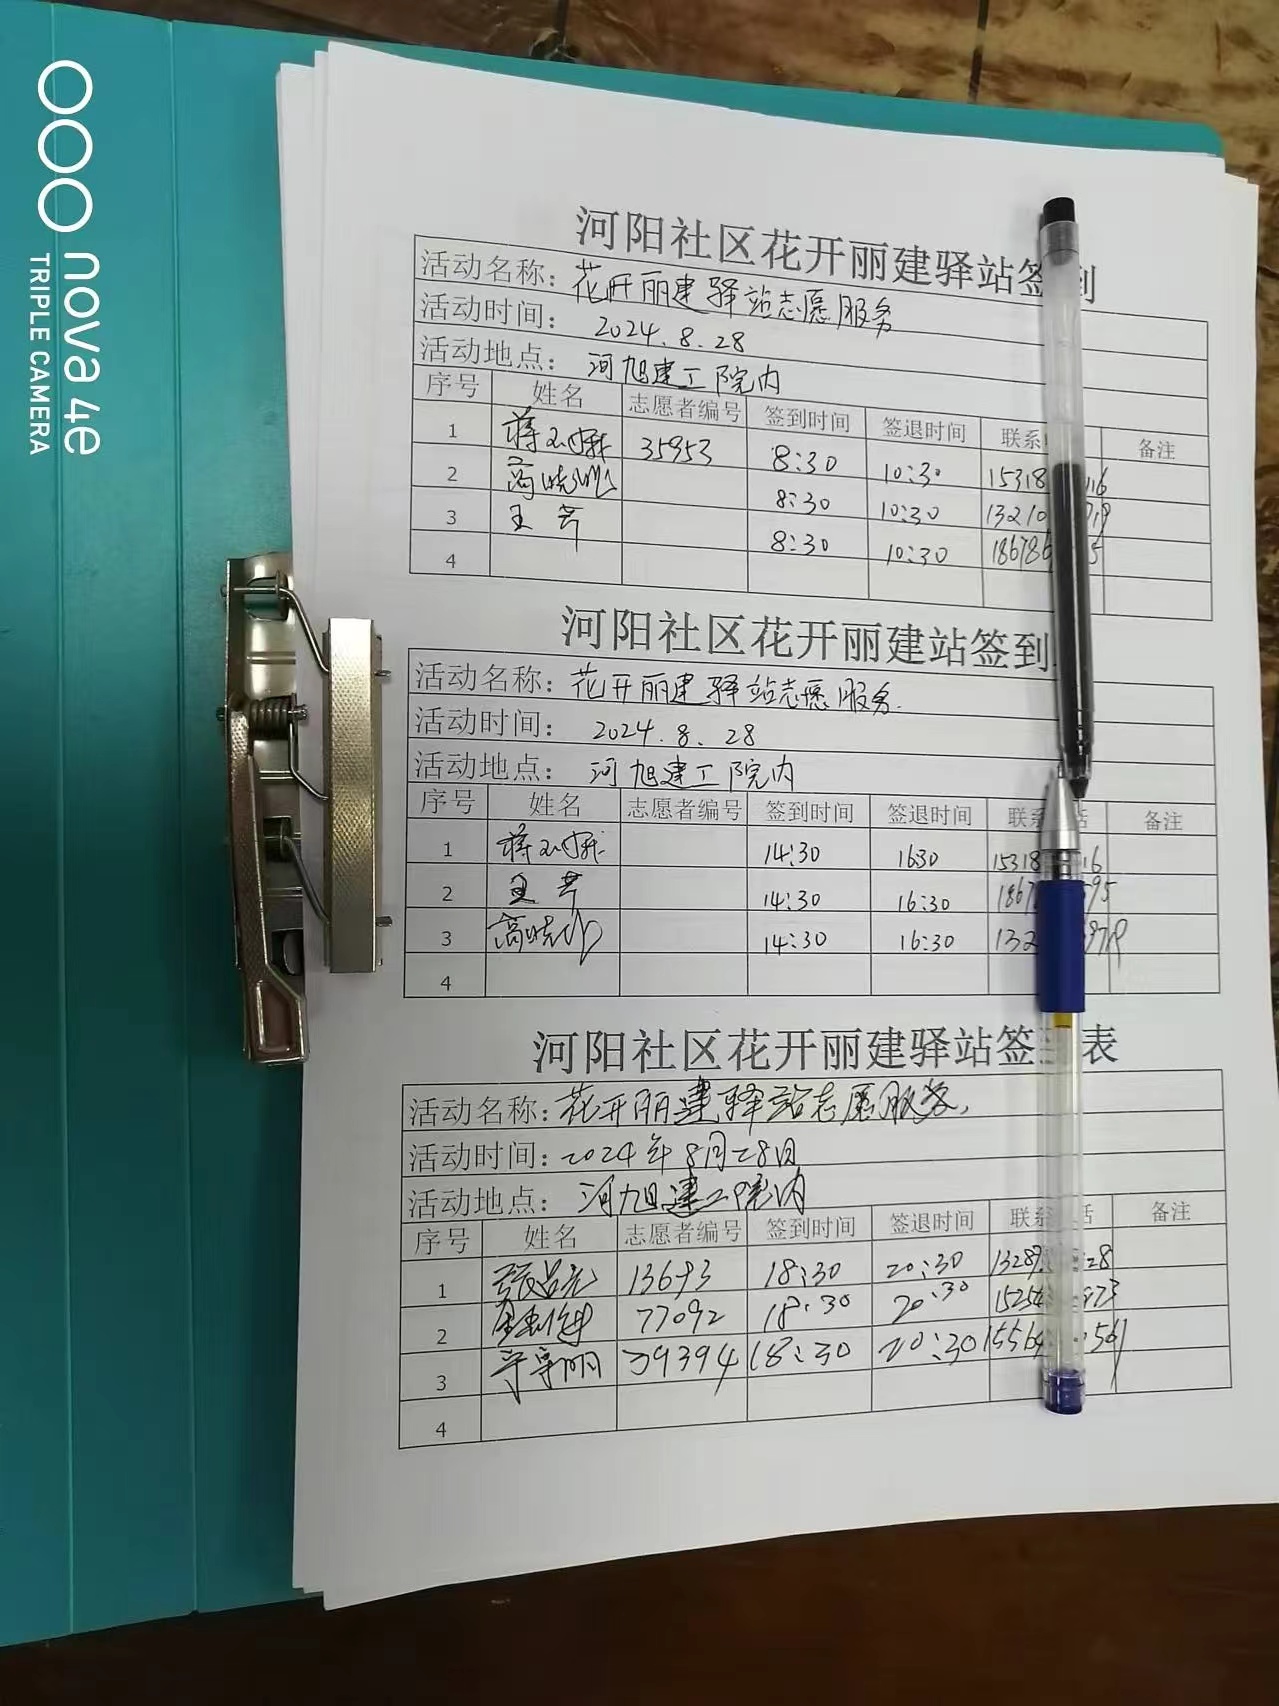 nova 4e
TRIPLE CAMERA
河阳社区花开丽建驿站签到
活动名称: 花开丽建驿站志愿服务
活动时间: 2024.8.28
活动地点: 河旭建工院内
序号 姓名 志愿者编号 签到时间 签退时间 联系 备注
1 35953 8:30 10:30 15318 16
2 8:30 10:30 13210
3 8:30 10:30 18678 5
4
河阳社区花开丽建站签到
活动名称: 花开丽建驿站志愿服务.
活动时间: 2024.8.28
活动地点: 河旭建工院内
序号 姓名 志愿者编号 签到时间 签退时间 联系 话 备注
1 14:30 1630 15318 16
2 14:30 16:30 1867 95
3 14:30 16:30 132
4
河阳社区花开丽建驿站签 表
活动名称: 花开丽建驿站志愿服务.
活动时间: 2024年8月28日
活动地点: 河旭建工院内
序号 姓名 志愿者编号 签到时间 签退时间 联系 话 备注
1 13693 18:30 20:30 13287 28
2 77092 18:30 20:30 15254 73
3 39394 18:30 20:30 1556 561
4